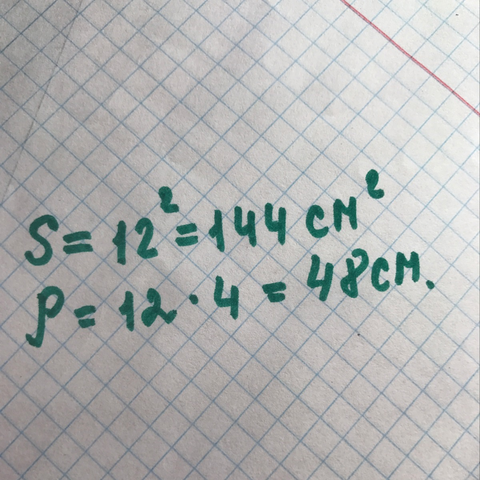 S = 12² = 144 см²
P = 12 · 4 = 48 см.